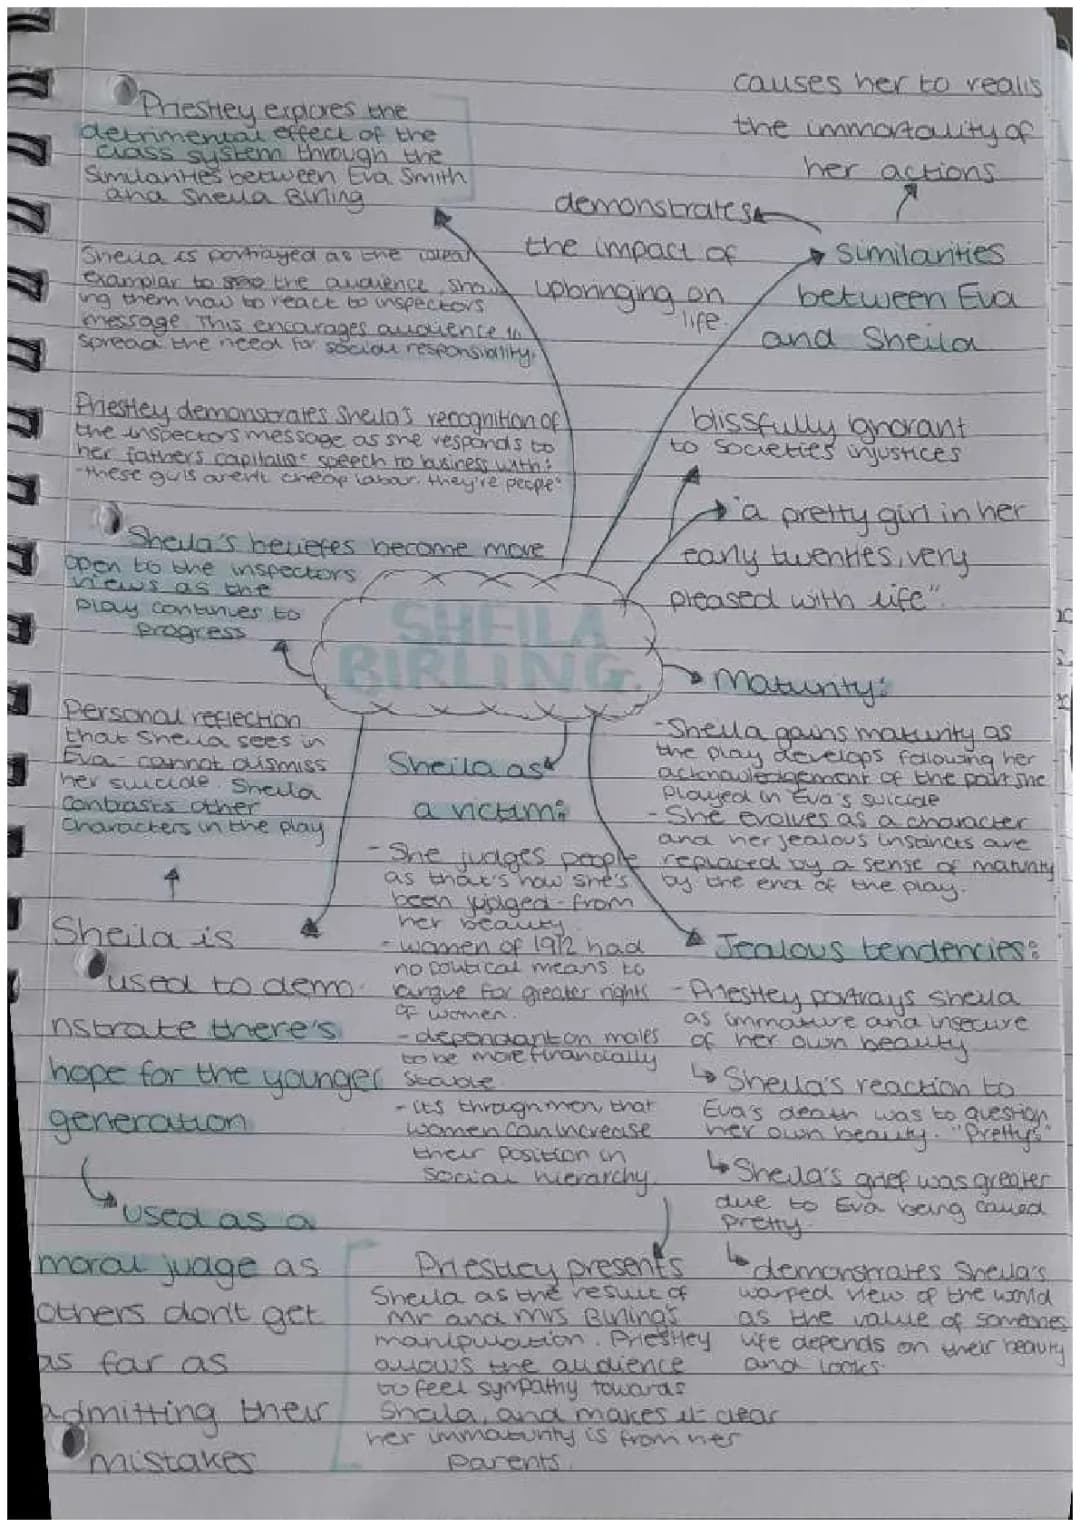 Priestley explores the
detrimental effect of the
class system through the
Similarities between Eva Smith
and Sheila Birling
Sheila is portrayed as the ideal
examplar to the audience, show
ing them how to react to inspectors
message. This encarages audience to
spread the need for social responsibility.
Priestley demonstrates Sheila's recognition of
the inspectors message as she responds to
her fathers capitalist speech to business with:
"these guls arent cheap labour. they're people"
Sheila's beliefes become more
open to the inspectors
views as the
play continues to
progress
causes her to realis
the immortality of
her actions
demonstrates
the impact of
upbringing on
life.
Similarities
between Eva
and Sheila
blissfully ignorant
to societies injustices
"a pretty girl in her
early twenties, very
pleased with life".
SHEILA
BIRLING.
Maturity:
-Sheila gains maturity as
the play develops following her
acknowledgement of the part she
played in Eva's suicide
- She evolves as a character
and her jealous insances are
replaced by a sense of maturity
by the end of the play.
Personal reflection
that Sheila sees in
Eva- cannot dismiss
her suicide. Sheila
contrasts other
characters in the play
Sheila is
used to demo
nstrate there's
hope for the younger
generation
used as a
moral judge as
others don't get
as far as
admitting their
mistakes
Sheila as
a victim:
- She judges people
as that's how she's
been judged-from
her beauty.
- women of 1912 had
no political means to
argue for greater rights
of women.
- dependant on males
to be more financially
stable
- its through men, that
women can increase
their position in
social hierarchy.
Priestley presents
Sheila as the result of
Mr and Mrs Birling's
manipulation. Priestley
allows the audience
to feel sympathy towards
Sheila, and makes it clear
her immaturity is from her
parents.
Jealous tendencies:
- Priestley portrays Sheila
as immature and insecure
of her own beauty
↳ Sheila's reaction to
Eva's death was to question
her own beauty. "Pretty?"
↳ Sheila's grief was greater
due to Eva being called
pretty.
↳ demonstrates Sheila's
warped view of the world
as the value of someones
life depends on their beauty
and looks.